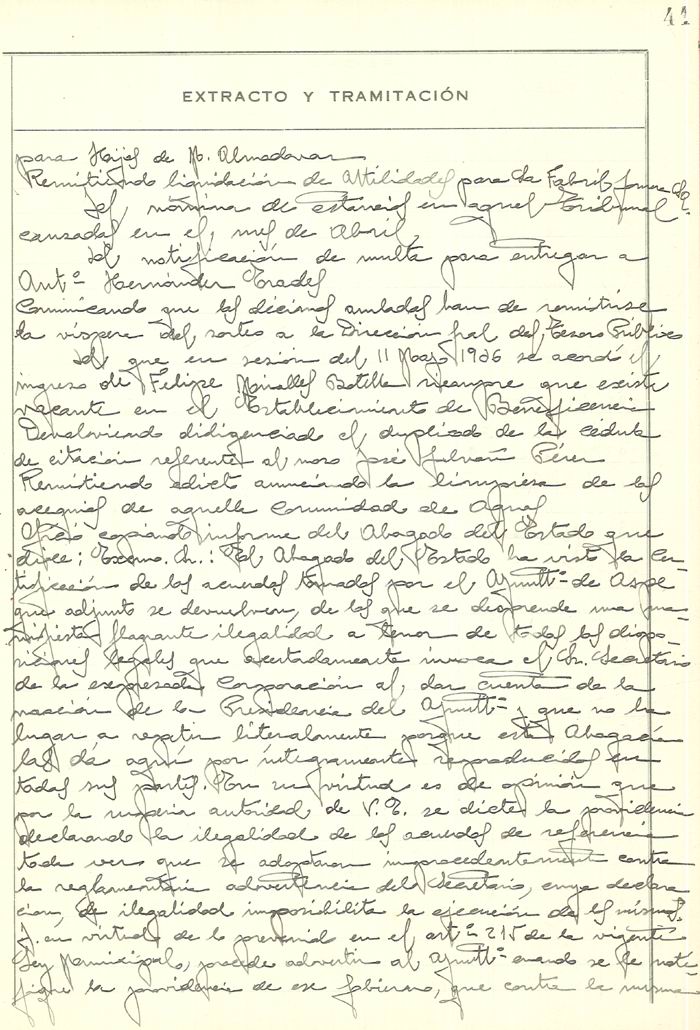 41
EXTRACTO Y TRAMITACIÓN
para Hijos de M. Almodovar
Remitiendo liquidación de Utilidades para La Fabril
Id nómina de estancias en aquel Tribunal
causadas en el mes de Abril
Id notificación de multa para entregar a
Antº Hernández Prades
Comunicando que los décimos anulados han de remitirse
la víspera del sorteo a la Dirección gral del Tesoro Público
Id que en sesión del 11 Mayo 1936 se acordó el
ingreso de Felipe Miralles Botella siempre que exista
vacante en el Establecimiento de Beneficencia
Devolviendo diligenciado el duplicado de la cédula
de citación referente al mozo José Pérez
Remitiendo edicto anunciando la limpieza de las
acequias de aquella Comunidad de Aguas
Oficio copiando informe del Abogado del Estado que
dice: Excmo. Sr.: El Abogado del Estado ha visto la cer-
tificación de los acuerdos tomados por el Ayuntº de Aspe
que adjunto se devuelven, de los que se desprende una ma-
nifiesta flagrante ilegalidad a tenor de todas las dispo-
siciones legales que acertadamente invoca el Sr. Secretario
de la expresada Corporación al dar cuenta de la
moción de la Presidencia del Ayuntº y que no ha
lugar a repetir literalmente porque esta Abogacía
las dá aquí por íntegramente reproducidas en
todas sus partes. En su virtud es de opinión que
por la superior autoridad de V.E. se dicte la providencia
declarando la ilegalidad de los acuerdos de referencia
toda vez que se adoptaron improcedentemente contra
la reglamentaria advertencia del Secretario, cuya declara
cion, de ilegalidad imposibilita la ejecución de los mismos.
Y en virtud de lo prevenido en el artº 215 de la vigente
Ley Municipal, procede advertir al Ayuntº cuando se le noti-
fique la providencia de ese Gobierno, que contra la misma